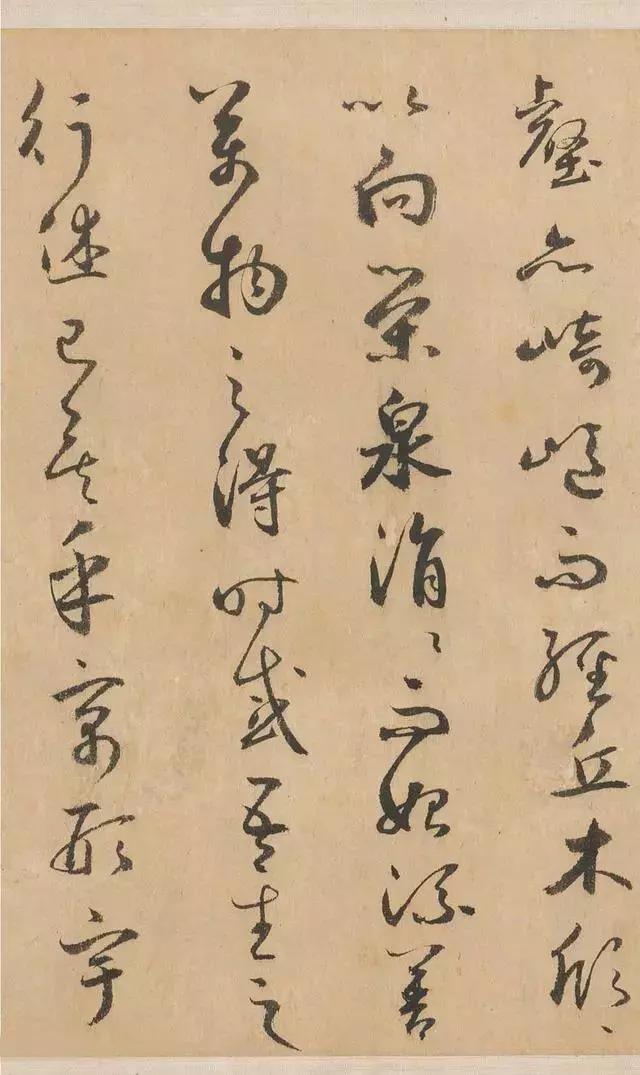 壑亦崎嶇而經丘木欣〻
以向榮泉涓〻而始流善
萬物之得時感吾生之
行已矣乎寓形宇